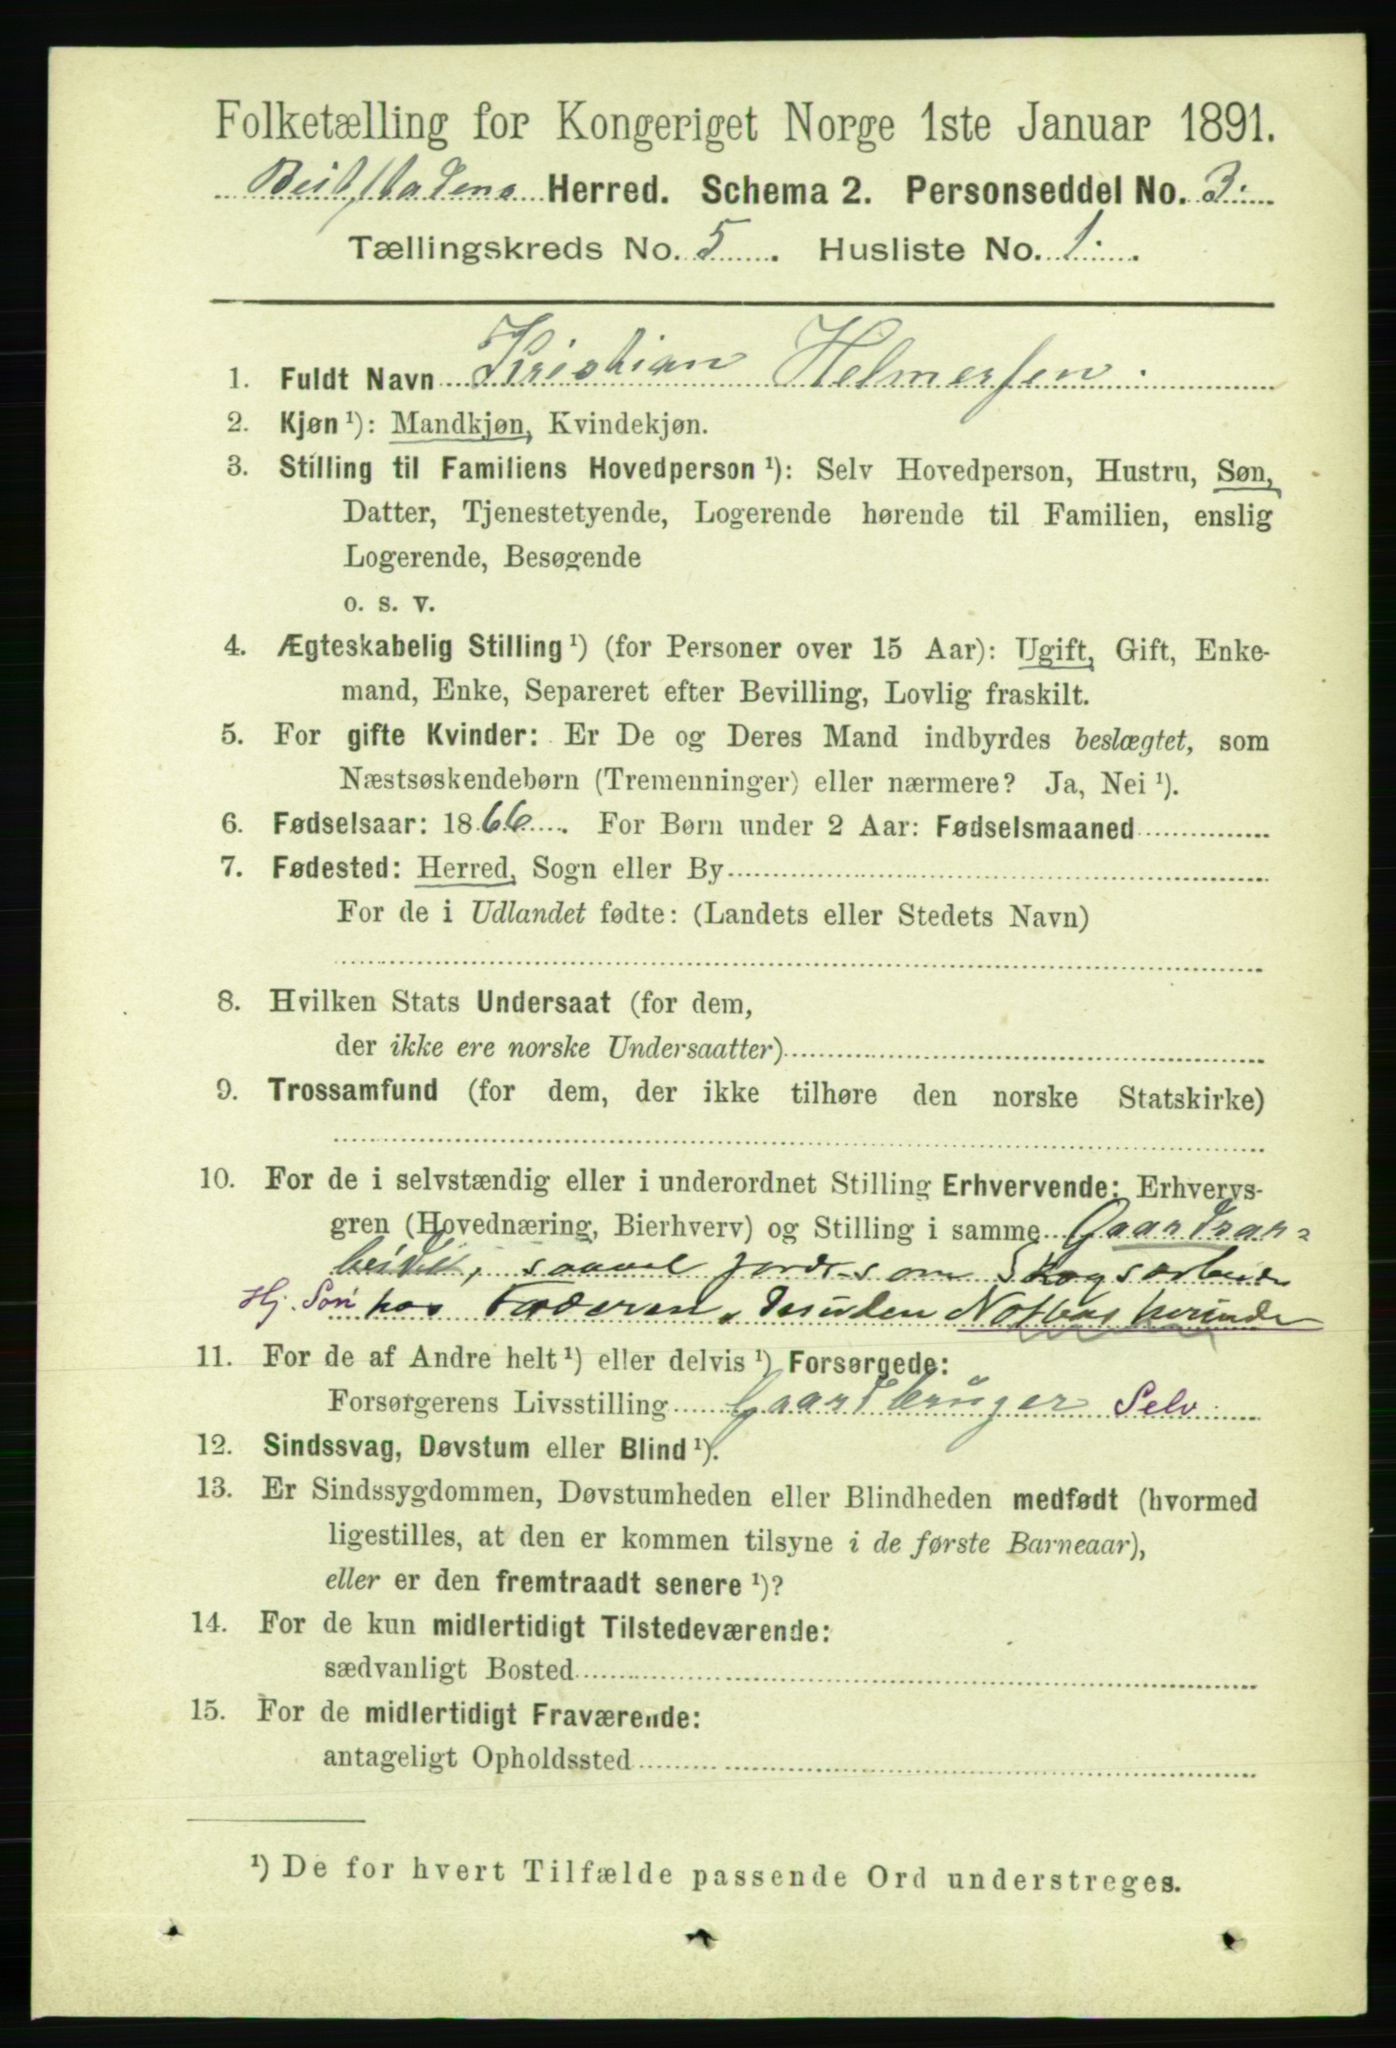 Folketælling for Kongeriget Norge 1ste Januar 1891.
Beitstadens Herred. Schema 2. Personseddel No. 3.
Tællingskreds No. 5. Husliste No. 1.
1. Fuldt Navn Kristian Helmersen.
2. Kjøn ¹): Mandkjøn, Kvindekjøn.
3. Stilling til Familiens Hovedperson ¹): Selv Hovedperson, Hustru, Søn,
Datter, Tjenestetyende, Logerende hørende til Familien, enslig
Logerende, Besøgende
o. s. v.
4. Ægteskabelig Stilling ¹) (for Personer over 15 Aar): Ugift, Gift, Enke-
mand, Enke, Separeret efter Bevilling, Lovlig fraskilt.
5. For gifte Kvinder: Er De og Deres Mand indbyrdes beslægtet, som
Næstsøskendebørn (Tremenninger) eller nærmere? Ja, Nei ¹).
6. Fødselsaar: 1866. For Børn under 2 Aar: Fødselsmaaned
7. Fødested: Herred, Sogn eller By
For de i Udlandet fødte: (Landets eller Stedets Navn)
8. Hvilken Stats Undersaat (for dem,
der ikke ere norske Undersaatter)
9. Trossamfund (for dem, der ikke tilhøre den norske Statskirke)
10. For de i selvstændig eller i underordnet Stilling Erhvervende: Erhvervs-
gren (Hovednæring, Bierhverv) og Stilling i samme Gaardsar-
beider, saavel Jords som Skogsarbeide
Hj. Søn hos Faderen, desuden
11. For de af Andre helt ¹) eller delvis ¹) Forsørgede:
Forsørgerens Livsstilling Gaardbruger Selv
12. Sindssvag, Døvstum eller Blind ¹).
13. Er Sindssygdommen, Døvstumheden eller Blindheden medfødt (hvormed
ligestilles, at den er kommen tilsyne i de første Barneaar),
eller er den fremtraadt senere ¹)?
14. For de kun midlertidigt Tilstedeværende:
sædvanligt Bosted
15. For de midlertidigt Fraværende:
antageligt Opholdssted
¹) De for hvert Tilfælde passende Ord understreges.